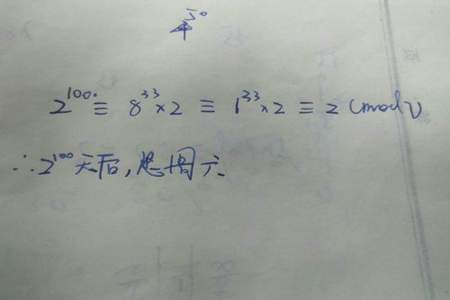 4^50
2^100 ≡ 8^33×2 ≡ 1^33×2 ≡ 2 (mod 7)
∴2^100天后,是周六